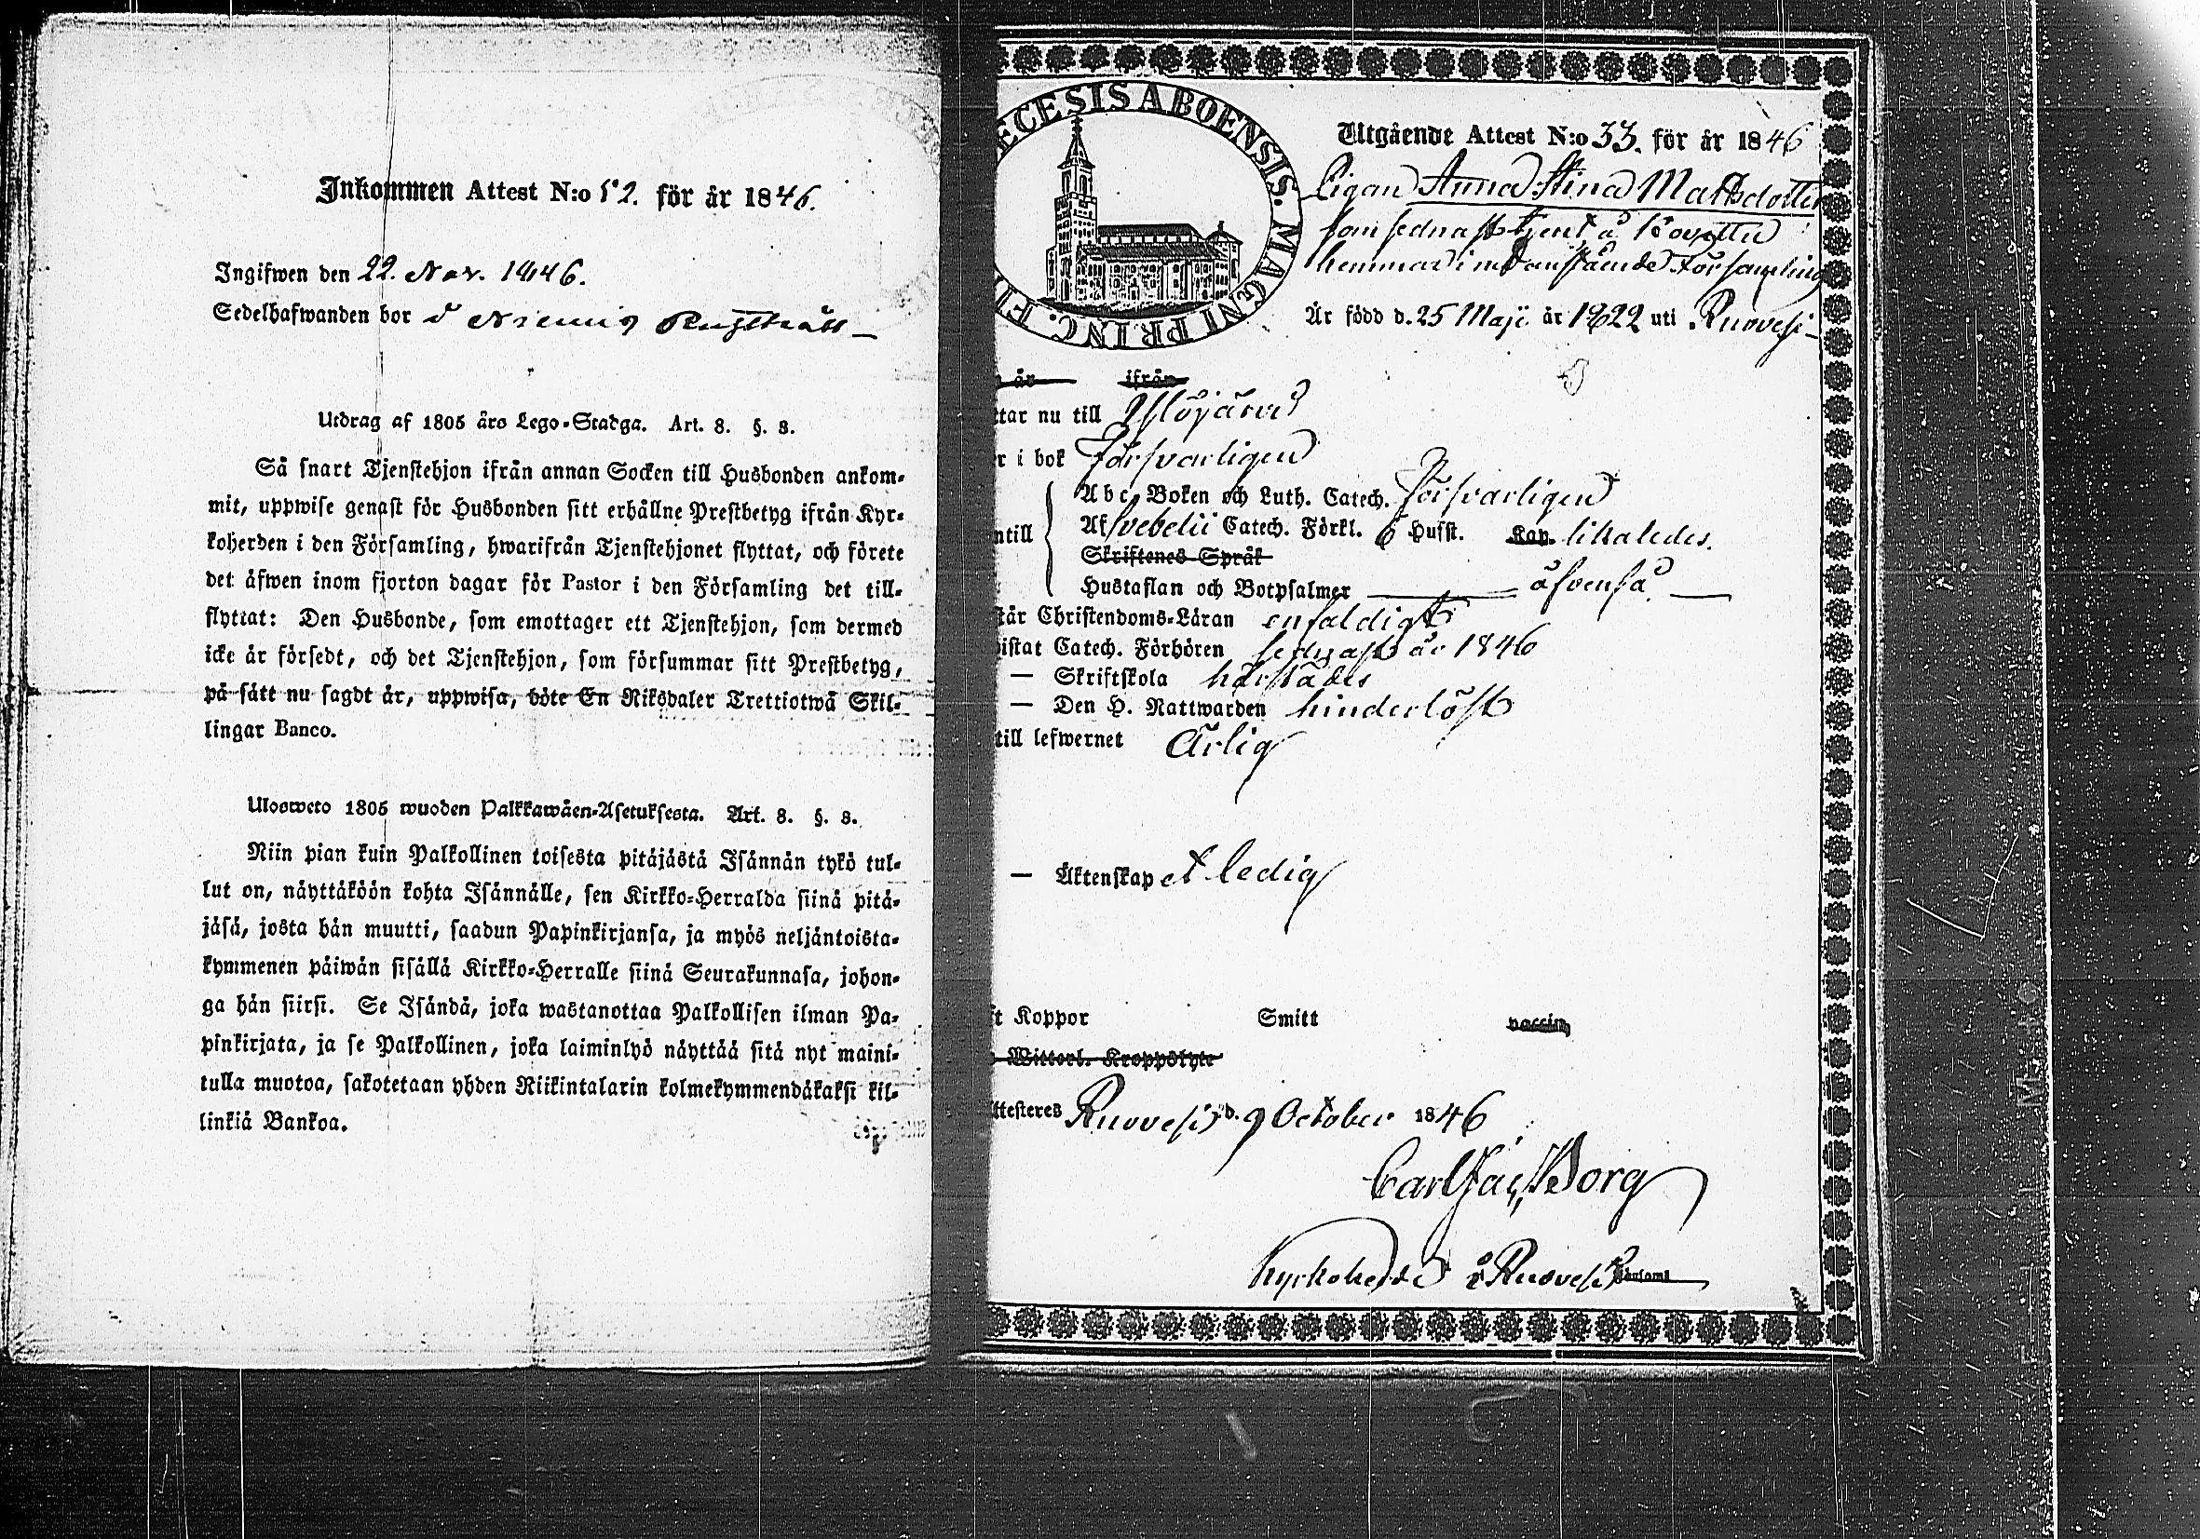 Inkommen Attest N:o 52. för år 1846.
Ingifwen den 22. Nov. 1846.
Sedelhafwanden bor å Niemis
Utdrag af 1805 års Lego-Stadga. Art. 8. §. 8.
Så snart Tjenstehjon ifrån annan Socken till Husbonden ankom-
mit, uppwise genast för Husbonden sitt erhållne Prestbetyg ifrån Kyr-
koherden i den Församling, hwarifrån Tjenstehjonet flyttat, och förete
det äfwen inom fjorton dagar för Pastor i den Församling det till-
flyttat: Den Husbonde, som emottager ett Tjenstehjon, som dermed
icke är försedt, och det Tjenstehjon, som försummar sitt Prestbetyg,
på sätt nu sagdt är, uppwisa, böte En Riksdaler Trettiotwå Skil-
lingar Banco.
Ulosweto 1805 wuoden Palkkawäen-Asetuksesta. Art. 8. §. 8.
Niin pian kuin Palkollinen toisesta pitäjästä Isännän tykö tul-
lut on, näyttäköön kohta Isännälle, sen Kirkko-Herralda siinä pitä-
jäsä, josta hän muutti, saadun Papinkirjansa, ja myös neljäntoista-
kymmenen päiwän sisällä Kirkko-Herralle siinä Seurakunnasa, johon-
ga hän siirsi. Se Isändä, joka wastanottaa Palkollisen ilman Pa-
pinkirjata, ja se Palkollinen, joka laiminlyö näyttää sitä nyt maini-
tulla muotoa, sakotetaan yhden Riikintalarin kolmekymmendäkaksi kil-
linkiä Bankoa.
ECESIS ABOENSIS. MAGNI PRINC. FI
Utgående Attest N:o 33. för år 1846
Pigan Anna Stina Mattsdotter
som sednast tjent å
hemman i nedanstående Församling
Är född d. 25 Maji år 1822 uti Ruovesi
år ifrån
ttar nu till Ylöjärvi
r i bok försvarligen
Abc-Boken och Luth. Catech. försvarligen
ntill
Af Svebelii Catech. Förkl. 6 Hufst. Kap. likaledes.
Skriftenes Språk
Hustaflan och Botpsalmer äfvenså
tår Christendoms-Läran enfaldigt
istat Catech. Förhören sednast år 1846
— Skriftskola härstädes
— Den H. Nattwarden hinderlöst
till lefwernet Ärlig
— Äktenskap et ledig
ft Koppor Smitt vaccin
Wittorl. Kroppslyte
ttesteres Ruovesi d. 9 October 1846
Carl Borg
Kyrkoherde i Ruovesi Församl.